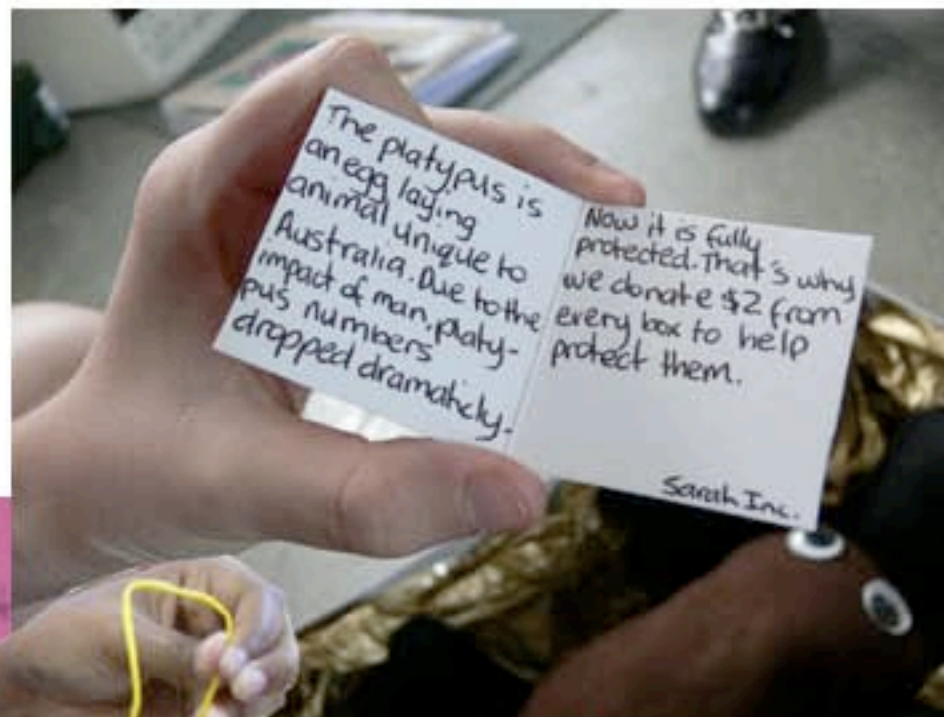 The platypus is
an egg laying
animal unique to
Australia. Due to the
impact of man, platy-
pus numbers
dropped dramaticly.
Now it is fully
protected. That's why
we donate $2 from
every box to help
protect them.
Sarah Inc.